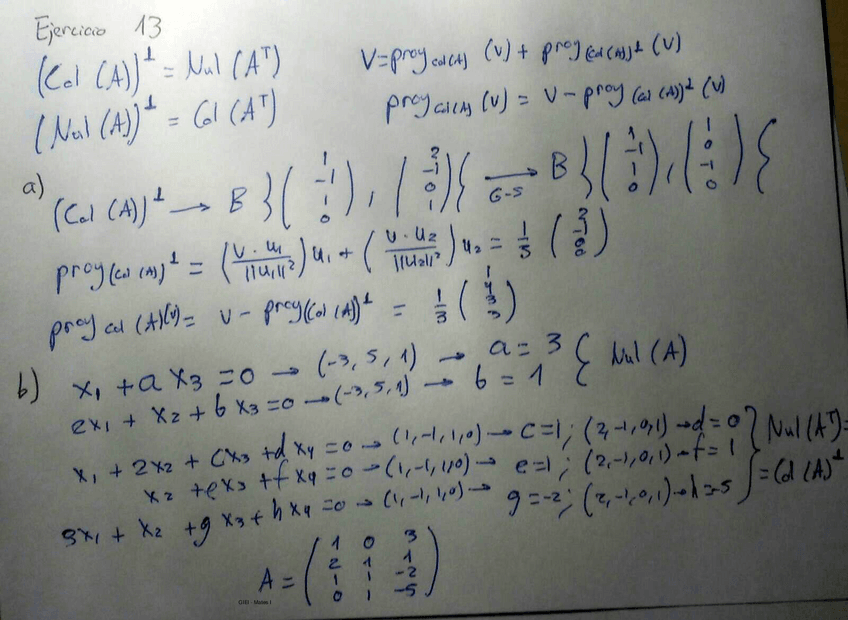 Ejercicio 13
(Col (A))^⊥ = Nul (A^T)
(Nul (A))^⊥ = Col (A^T)
V = proy_{Col(A)} (V) + proy_{(Col(A))^⊥} (V)
proy_{Col(A)} (V) = V - proy_{(Col(A))^⊥} (V)
a) (Col (A))^⊥ → B } (1 -1 1 0), (2 -1 0 1) { →_{G-S} B } (1 -1 1 0), (1 0 -1 0) {
proy_{(Col(A))^⊥} = (V · u_1 / ||u_1||²) u_1 + (V · u_2 / ||u_2||²) u_2 = 1/3 (2 -1 0 0)
proy_{Col(A)}(V) = V - proy_{(Col(A))^⊥} = 1/3 (1 4 3 3)
b) x_1 + a x_3 = 0 → (-3, 5, 1) → a = 3 { Nul (A)
2x_1 + x_2 + b x_3 = 0 → (-3, 5, 1) → b = 1
x_1 + 2x_2 + c x_3 + d x_4 = 0 → (1, -1, 1, 0) → c = 1; (2, -1, 0, 1) → d = 0 } Nul (A^T) =
x_2 + e x_3 + f x_4 = 0 → (1, -1, 1, 0) → e = 1; (2, -1, 0, 1) → f = 1 = Col (A)^⊥
3x_1 + x_2 + g x_3 + h x_4 = 0 → (1, -1, 1, 0) → g = -2; (2, -1, 0, 1) → h = -5
A = (1 0 3
2 1 1
1 1 -2
0 1 -5)